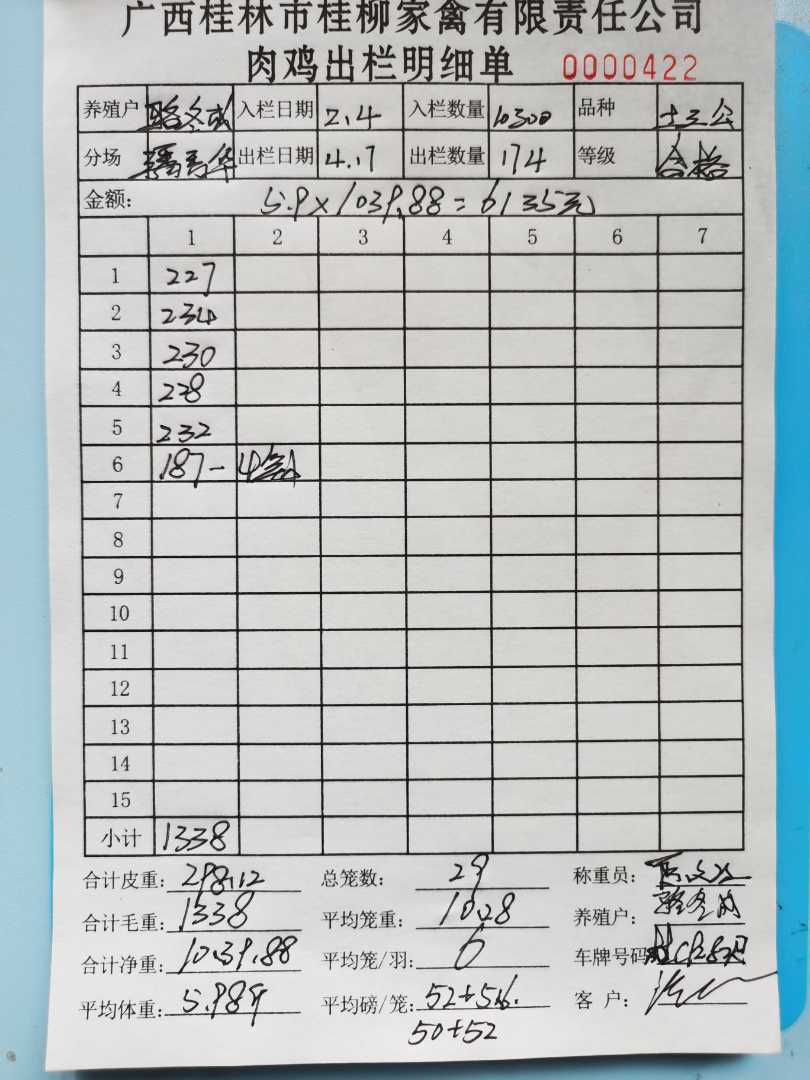 广西桂林市桂柳家禽有限责任公司
肉鸡出栏明细单 0000422
养殖户 骆冬 入栏日期 2.4 入栏数量 10300 品种 土三公
分场 华 出栏日期 4.17 出栏数量 174 等级 合格
金额: 5.9×1039.88=6135元
1 2 3 4 5 6 7
1 227
2 234
3 230
4 228
5 232
6 187-4
7
8
9
10
11
12
13
14
15
小计 1338
合计皮重: 298.12 总笼数: 29 称重员:
合计毛重: 1338 平均笼重: 10.28 养殖户: 骆冬
合计净重: 1039.88 平均笼/羽: 6 车牌号码:
平均体重: 5.989 平均磅/笼: 52+516. 客户:
50+52